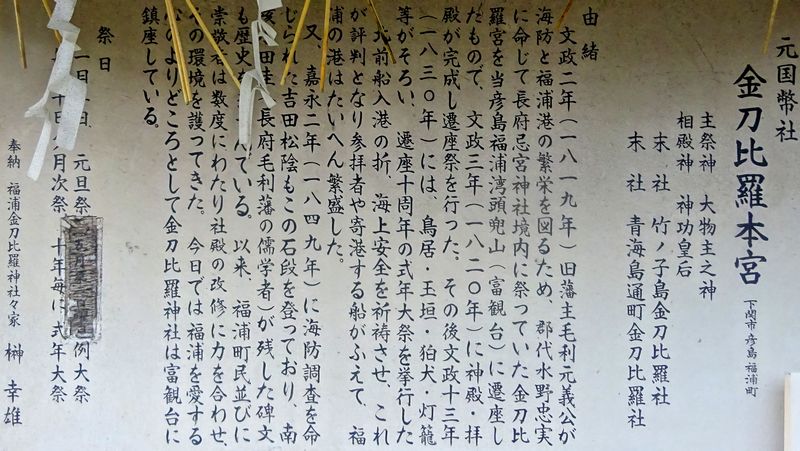 元国幣社
金刀比羅本宮
下関市彦島福浦町
主祭神 大物主之神
相殿神 神功皇后
末社 竹ノ子島金刀比羅社
末社 青海島通町金刀比羅社
由緒
文政二年(一八一九年)旧藩主毛利元義公が
海防と福浦港の繁栄を図るため、郡代水野忠実
に命じて長府忌宮神社境内に祭っていた金刀比
羅宮を当彦島福浦湾頭兜山(富観台)に遷座し
たもので、文政三年(一八二〇年)に神殿・拝
殿が完成し遷座祭を行った。その後文政十三年
(一八三〇年)には、鳥居・玉垣・狛犬・灯籠
等がそろい、遷座十周年の式年大祭を挙行した
北前船入港の折、海上安全を祈祷させ、これ
が評判となり参拝者や寄港する船がふえて、福
浦の港はたいへん繁盛した。
又、嘉永二年(一八四九年)に海防調査を命
じられた吉田松陰もこの石段を登っており、南
田圭(長府毛利藩の儒学者)が残した碑文
も歴史を んでいる。以来、福浦町民並びに
崇敬者は数度にわたり社殿の改修に力を合わせ、
の環境を護ってきた。今日では福浦を愛する
のよりどころとして金刀比羅神社は富観台に
鎮座している。
祭日
一日 、元旦祭 例大祭
十日 月次祭 十年毎に式年大祭
奉納 福浦金刀比羅神社々家 榊 幸雄